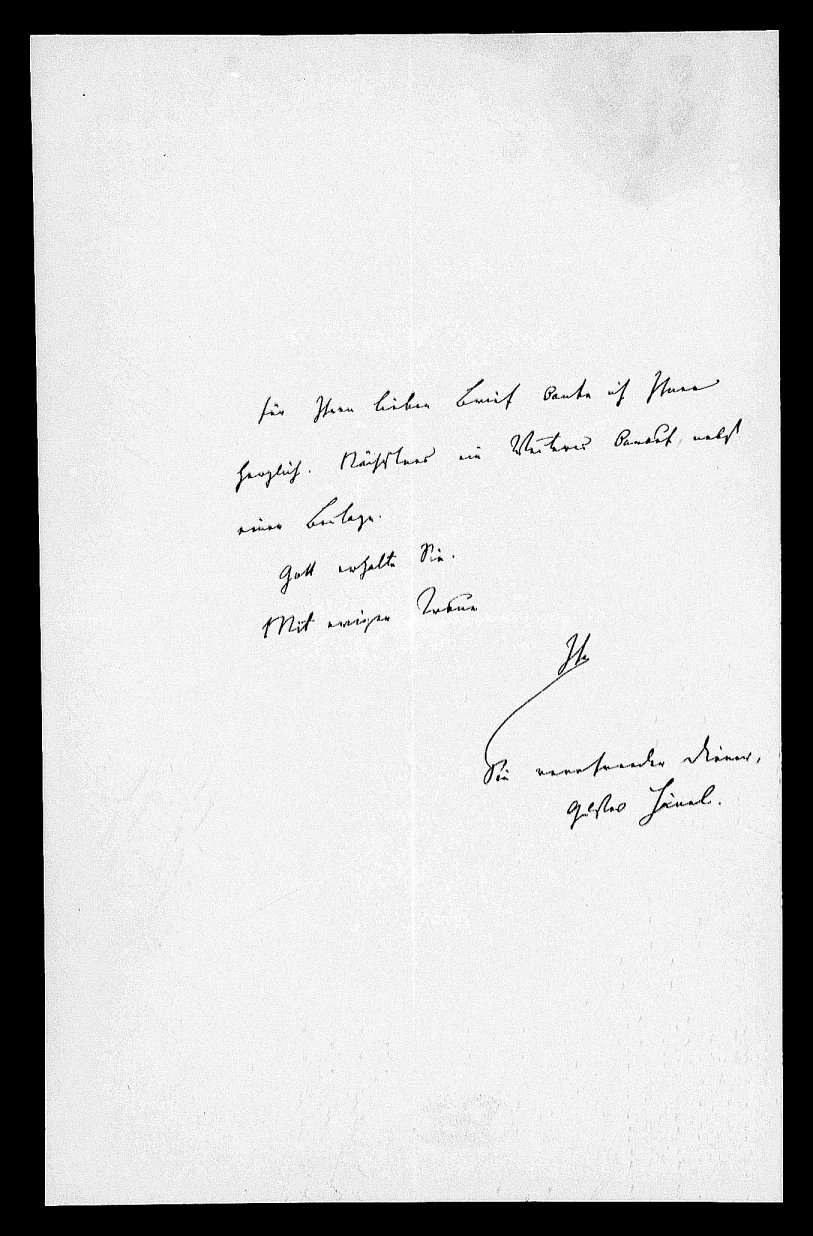 für Ihren lieben Brief danke ich Ihnen
herzlich. Nächstens ein Weiteres darauf, nebst
einer Beilage.
Gott erhalte Sie.
Mit ewiger Treue
Ihr
Sie verehrender Diener,
Gustav Hänel.